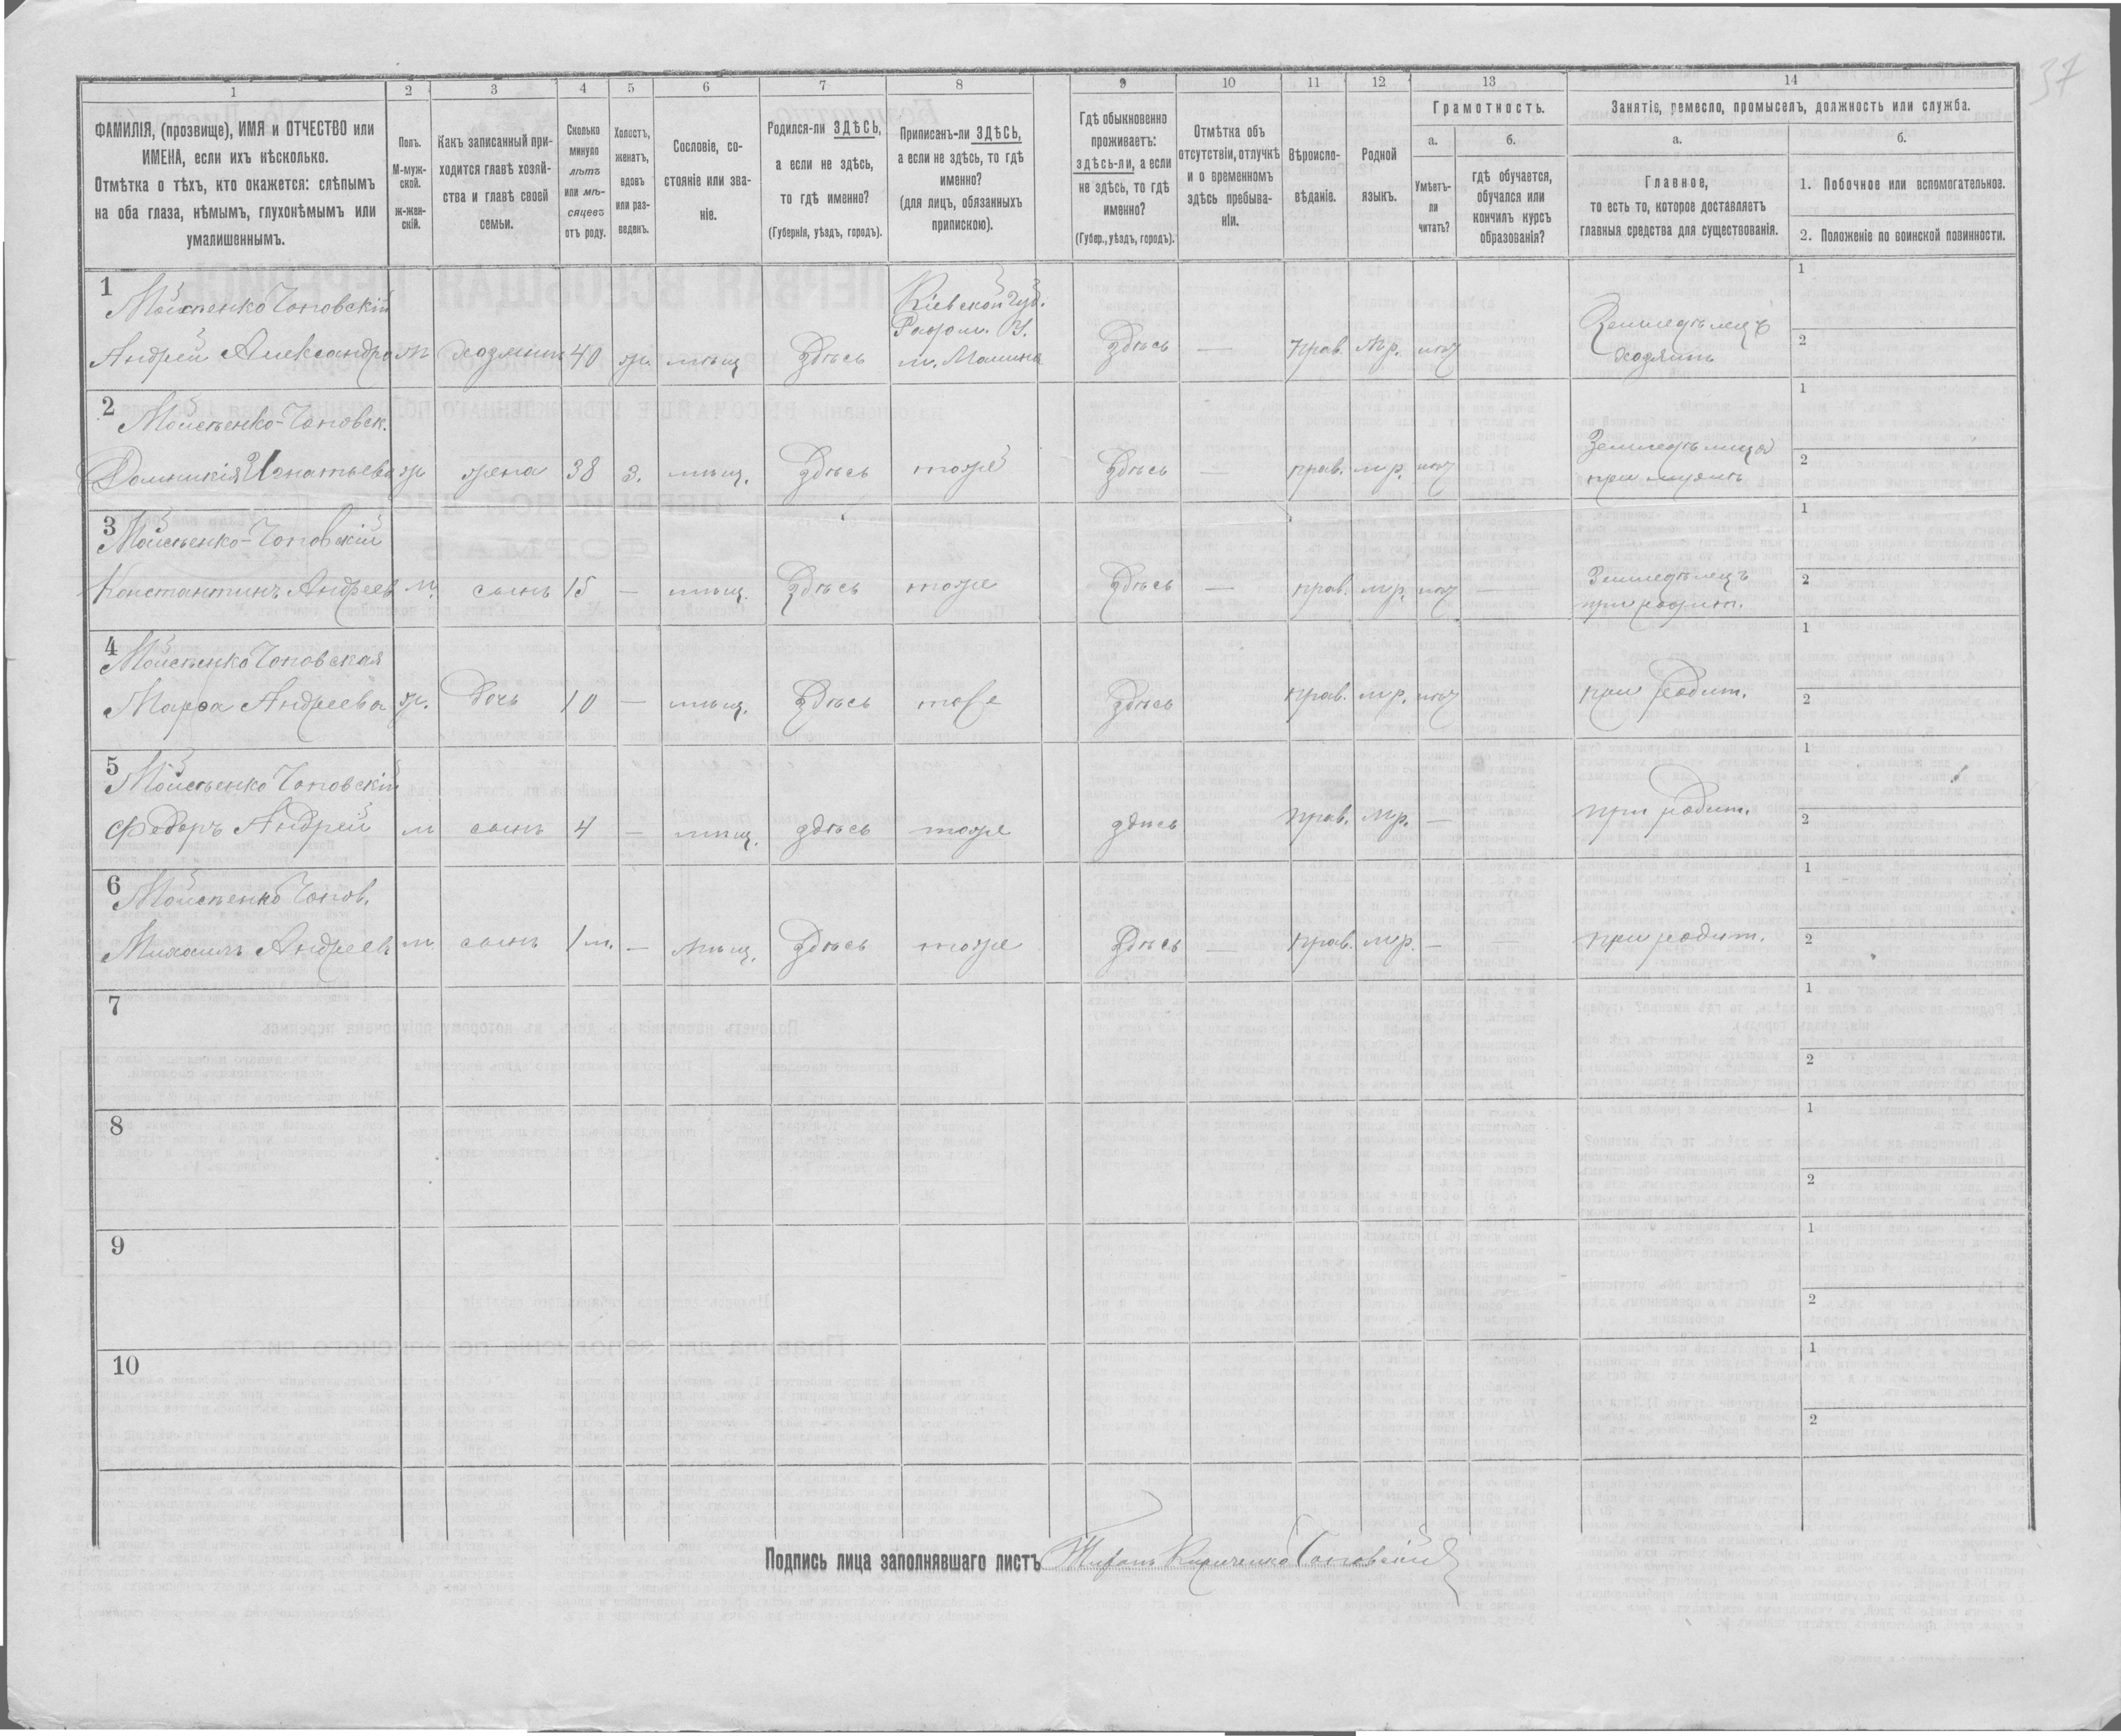 37
1 2 3 4 5 6 7 8 9 10 11 12 13 14
ФАМИЛІЯ, (прозвище), ИМЯ и ОТЧЕСТВО или
ИМЕНА, если ихъ нѣсколько.
Отмѣтка о тѣхъ, кто окажется: слѣпымъ
на оба глаза, нѣмымъ, глухонѣмымъ или
умалишеннымъ.
Полъ.
М-муж-
ской.
ж-жен-
скій.
Какъ записанный при-
ходится главѣ хозяй-
ства и главѣ своей
семьи.
Сколько
минуло
лѣтъ
или мѣ-
сяцевъ
отъ роду.
Холостъ,
женатъ,
вдовъ
или раз-
веденъ.
Сословіе, со-
стояніе или зва-
ніе.
Родился-ли ЗДѢСЬ,
а если не здѣсь,
то гдѣ именно?
(Губернія, уѣздъ, городъ).
Приписанъ-ли ЗДѢСЬ,
а если не здѣсь, то гдѣ
именно?
(для лицъ, обязанныхъ
припискою).
Гдѣ обыкновенно
проживаетъ:
здѣсь-ли, а если
не здѣсь, то гдѣ
именно?
(Губер., уѣздъ, городъ).
Отмѣтка объ
отсутствіи, отлучкѣ
и о временномъ
здѣсь пребыва-
ніи.
Вѣроиспо-
вѣданіе.
Родной
языкъ.
Грамотность.
а.
Умѣетъ-
ли
читать?
б.
гдѣ обучается,
обучался или
кончилъ курсъ
образованія?
Занятіе, ремесло, промыселъ, должность или служба.
а.
Главное,
то есть то, которое доставляетъ
главныя средства для существованія.
б.
1. Побочное или вспомогательное.
2. Положеніе по воинской повинности.
1
Мойсѣенко Чоповскій
Андрей Александро м хозяинъ 40 ж. мѣщ Здѣсь
Кіевской губ.
Радом. У.
м. Малина
Здѣсь — Прав. Мр. нѣт
Земледѣлецъ
хозяинъ
1
2
2
Мойсѣенко-Чоповск.
Домникія Игнатьева ж жена 38 З. мѣщ. Здѣсь тоже Здѣсь — прав. мр. нѣт
Земледѣлица
при мужѣ
1
2
3
Мойсѣенко-Чоповскій
Константинъ Андреев м. сынъ 15 — мѣщ. Здѣсь тоже Здѣсь — прав. мр. нѣт —
Земледѣлецъ
при родит.
1
2
4
Мойсѣенко Чоповская
Марѳа Андреева ж. дочь 10 — мѣщ. Здѣсь тоже Здѣсь прав. мр. нѣт при родит.
1
2
5
Мойсѣенко Чоповскій
Федоръ Андрей м сынъ 4 — мѣщ. здѣсь тоже здѣсь прав. мр. — при родит.
1
2
6
Мойсѣенко Чопов.
Михаилъ Андреев м сынъ 1 м. — мѣщ. Здѣсь тоже Здѣсь — прав. мр. — при родит.
1
2
7
1
2
8
1
2
9
1
2
10
1
2
Подпись лица заполнявшаго листъ Чоповскій